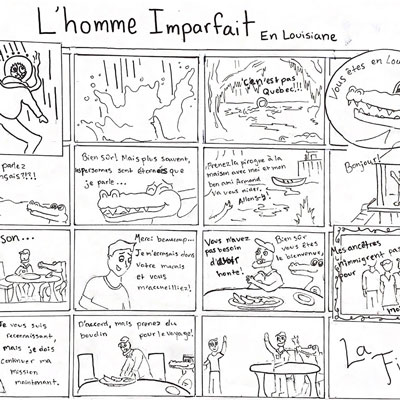 L'homme Imparfait En Louisiane
Ce n'est pas
Quebec!!!
Vous êtes en Lou
parlez
çais?!?!
Bien sûr! Mais plus souvent,
les personnes sont étonnées que
je parle...
Prenez la pirogue à la
maison avec moi et mon
bon ami Armand
va vous aider.
Allons-y!
Bonjour!
son...
Merci beaucoup...
Je m'écrasais dans
votre marais
et vous
m'accueillez!
Vous n'avez
pas besoin
d'avoir
honte!
Bien sûr
vous êtes
le bienvenue,
Mes ancêtres
immigrent pas
pour
Je vous suis
reconnaissant,
mais je dois
continuer ma
mission
maintenant.
D'accord, mais prenez du
boudin
pour le voyage!
La
Fi